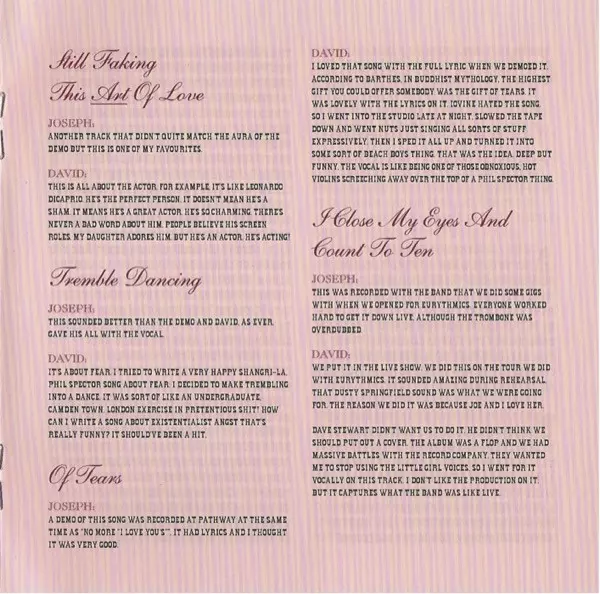 Still Faking
This Art Of Love
JOSEPH:
ANOTHER TRACK THAT DIDN'T QUITE MATCH THE AURA OF THE
DEMO BUT THIS IS ONE OF MY FAVOURITES.
DAVID:
THIS IS ALL ABOUT THE ACTOR. FOR EXAMPLE, IT'S LIKE LEONARDO
DICAPRIO. HE'S THE PERFECT PERSON. IT DOESN'T MEAN HE'S A
SHAM. IT MEANS HE'S A GREAT ACTOR. HE'S SO CHARMING. THERE'S
NEVER A BAD WORD ABOUT HIM. PEOPLE BELIEVE HIS SCREEN
ROLES. MY DAUGHTER ADORES HIM. BUT HE'S AN ACTOR. HE'S ACTING!
Tremble Dancing
JOSEPH:
THIS SOUNDED BETTER THAN THE DEMO AND DAVID, AS EVER,
GAVE HIS ALL WITH THE VOCAL.
DAVID:
IT'S ABOUT FEAR. I TRIED TO WRITE A VERY HAPPY SHANGRI-LA,
PHIL SPECTOR SONG ABOUT FEAR. I DECIDED TO MAKE TREMBLING
INTO A DANCE. IT WAS SORT OF LIKE AN UNDERGRADUATE,
CAMDEN TOWN, LONDON EXERCISE IN PRETENTIOUS SHIT! HOW
CAN I WRITE A SONG ABOUT EXISTENTIALIST ANGST THAT'S
REALLY FUNNY? IT SHOULD'VE BEEN A HIT.
Of Tears
JOSEPH:
A DEMO OF THIS SONG WAS RECORDED AT PATHWAY AT THE SAME
TIME AS "NO MORE "I LOVE YOU'S"". IT HAD LYRICS AND I THOUGHT
IT WAS VERY GOOD.
DAVID:
I LOVED THAT SONG WITH THE FULL LYRIC WHEN WE DEMOED IT.
ACCORDING TO BARTHES, IN BUDDHIST MYTHOLOGY, THE HIGHEST
GIFT YOU COULD OFFER SOMEBODY WAS THE GIFT OF TEARS. IT
WAS LOVELY WITH THE LYRICS ON IT. IOVINE HATED THE SONG,
SO I WENT INTO THE STUDIO LATE AT NIGHT, SLOWED THE TAPE
DOWN AND WENT NUTS JUST SINGING ALL SORTS OF STUFF
EXPRESSIVELY. THEN I SPED IT ALL UP AND TURNED IT INTO
SOME SORT OF BEACH BOYS THING. THAT WAS THE IDEA. DEEP BUT
FUNNY. THE VOCAL IS LIKE BEING ONE OF THOSE OBNOXIOUS, HOT
VIOLINS SCREECHING AWAY OVER THE TOP OF A PHIL SPECTOR THING.
I Close My Eyes And
Count To Ten
JOSEPH:
THIS WAS RECORDED WITH THE BAND THAT WE DID SOME GIGS
WITH WHEN WE OPENED FOR EURYTHMICS. EVERYONE WORKED
HARD TO GET IT DOWN LIVE, ALTHOUGH THE TROMBONE WAS
OVERDUBBED.
DAVID:
WE PUT IT IN THE LIVE SHOW. WE DID THIS ON THE TOUR WE DID
WITH EURYTHMICS. IT SOUNDED AMAZING DURING REHEARSAL.
THAT DUSTY SPRINGFIELD SOUND WAS WHAT WE WERE GOING
FOR. THE REASON WE DID IT WAS BECAUSE JOE AND I LOVE HER.
DAVE STEWART DIDN'T WANT US TO DO IT. HE DIDN'T THINK WE
SHOULD PUT OUT A COVER. THE ALBUM WAS A FLOP AND WE HAD
MASSIVE BATTLES WITH THE RECORD COMPANY. THEY WANTED
ME TO STOP USING THE LITTLE GIRL VOICES, SO I WENT FOR IT
VOCALLY ON THIS TRACK. I DON'T LIKE THE PRODUCTION ON IT,
BUT IT CAPTURES WHAT THE BAND WAS LIKE LIVE.